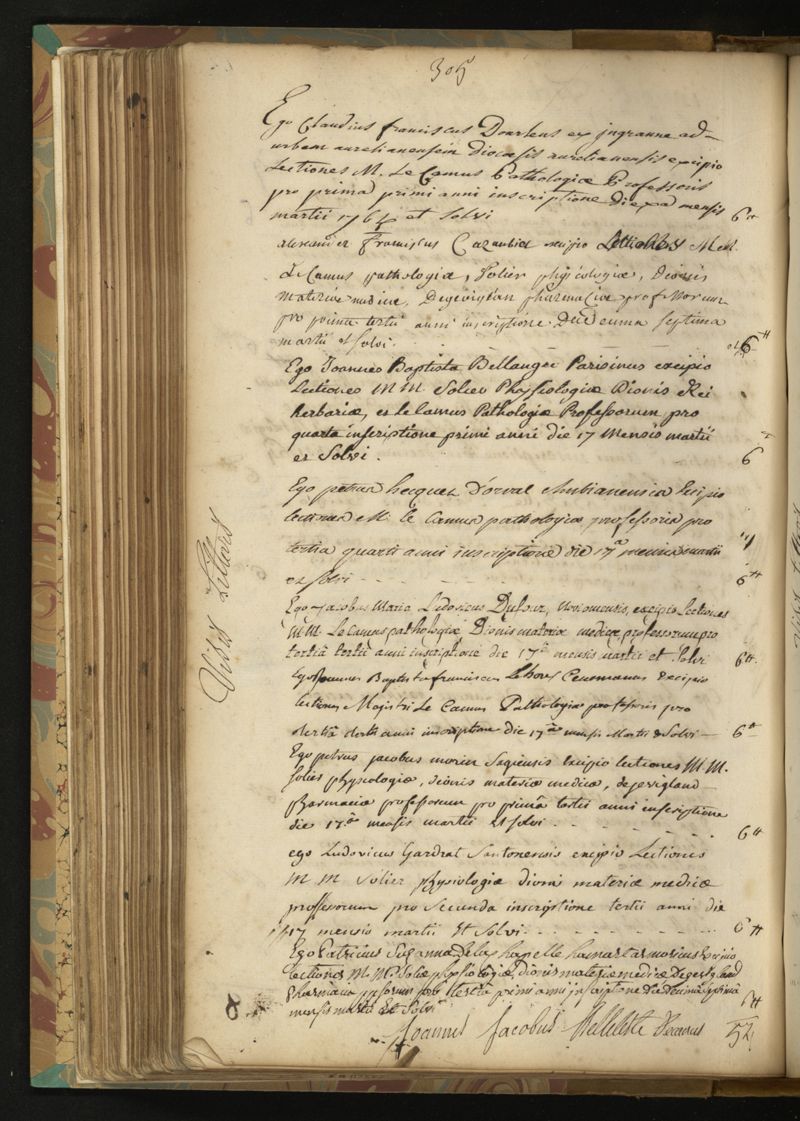 305
Ego Claudius franciscus Dourlens ex ingranne ad
urbem aurelianensem diocesis aurelianensis excipio
Lectiones M. Le Camus Pathologiæ Professoris
pro prima primi anni inscriptione die mensis
martii 1764 et solvi 6tt
alexander franciscus excipio Med.
Le Camus pathologiæ, Solier physiologiæ, Dionis
materiæ medicæ, Degevigland pharmaciæ professorum
pro prima tertii anni inscriptione Die decima septima
martii et solvi. 6tt
Ego Joannes Baptista Bellanger Parisinus excipio
Lectiones M M. Solier Physiologiæ Dionis Rei
herbariæ, et le Camus Pathologiæ Professorum pro
quarta inscriptione primi anni die 17 Mensis martii
et Solvi. 6
Ego petrus hecquet D'orval Ambianensis Excipio
lectiones M. le Camus pathologiæ professoris pro
tertia quarti anni inscriptione die 17a mensis martii
et solvi 6tt
Ego Jacobus Maria Ludovicus Dufour, excipio Lectiones
M.M. Le Camus pathologiæ Dionis materiæ medicæ professorum pro
tertiâ tertii anni inscriptione die 17a mensis martii et Solvi 6tt
Ego Joannes Baptista franciscus Cenomanus Excipio
lectiones Magistri Le Camus Pathologiæ professoris pro
tertiâ anni inscriptione die 17a mensis Martii & Solvi 6tt
Ego petrus jacobus morin Sagiensis Excipio lectiones M.M.
solier physiologiæ, dionis materiæ medicæ, degevigland
pharmaciæ professorum pro primâ tertii anni inscriptione
die 17.a mensis martii Et solvi 6tt
ego Ludovicus Gardrat Santonensis excipio Lectiones
M M Solier physiologiæ dionis materiæ medicæ
professorum pro Secunda inscriptione tertii anni die
17 mensis martii Et Solvi 6tt
Ego Patricius delachapelle Excipio
Lectiones M.M. Solier physiologiæ, dionis materiæ medicæ Degevigland
Pharmaciæ pro tertiâ primi anni inscriptione die decima septima
mensis martii Et Solvi 6tt
Joannes Jacobus Belleteste Decanus 52
Vidit